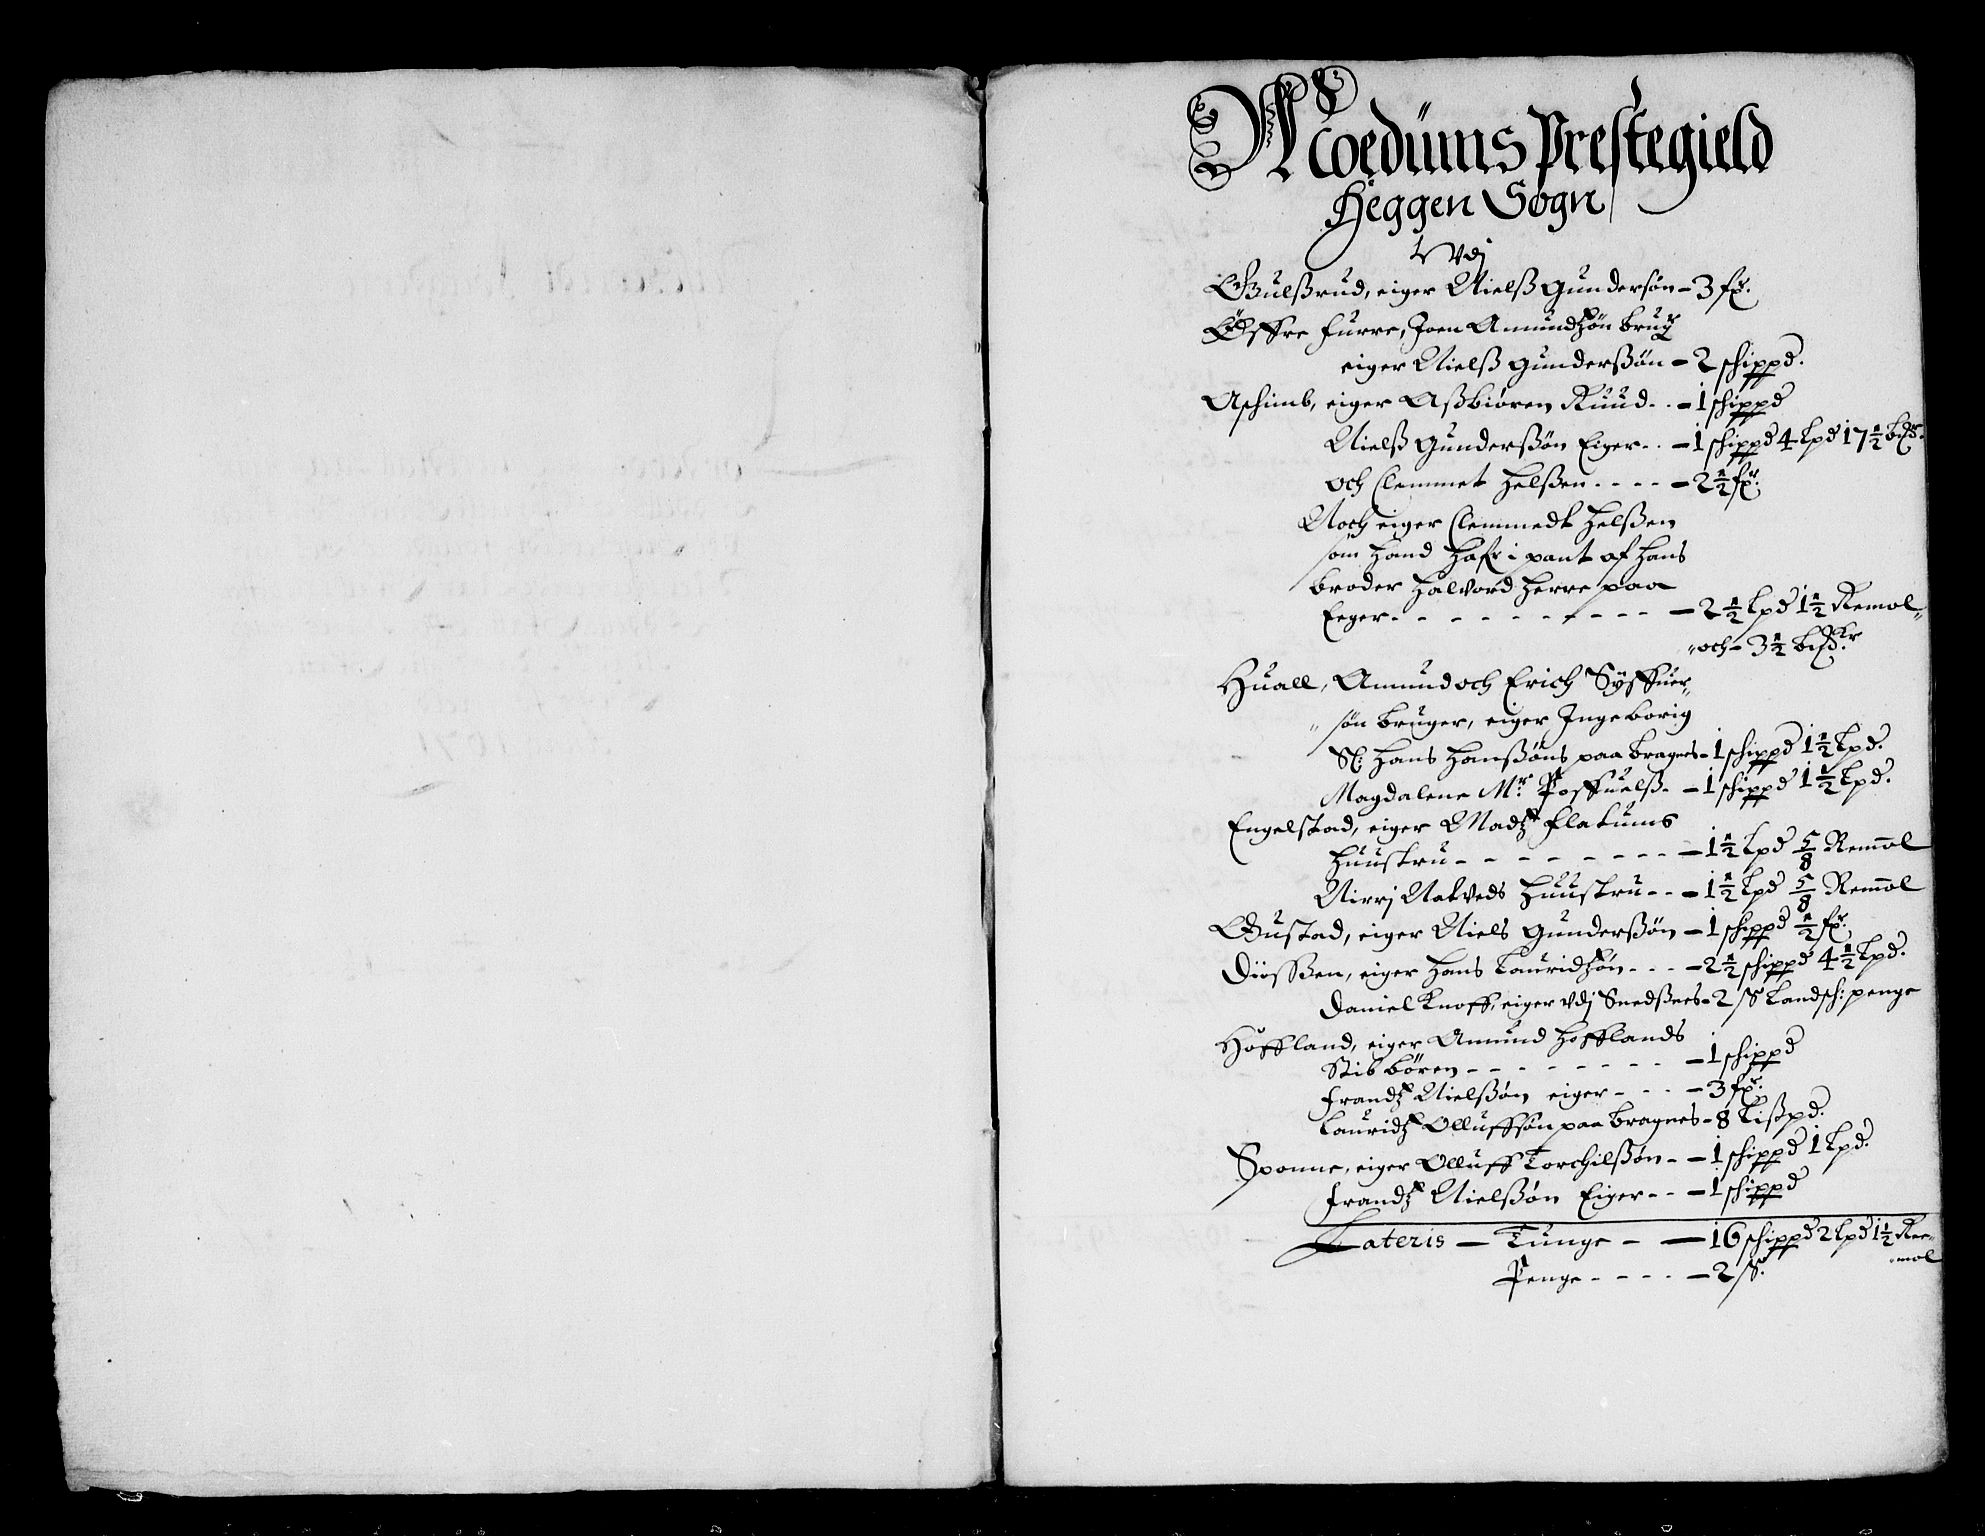 Moedüms Prestegield
Heggen Sogn
Vdj
Gulsrud, eiger Nielß Gundersøn - 3 fr.
Öffre furre, Joen Amundzøn brug
eiger Nielß Gunderßøn - 2 schippd.
Aschimb, eiger Aßbiøren Ruud - 1 schippd
Nielß Gunderßøn Eiger - 1 schippd 4 lpd 17½
och Clemmet Helßen - 2½ fr.
Noch eiger Clemmedt Helßen
som hand hafr i pant af hans
broder Halvord Herre paa
Eeger - 2½ lpd 1½ Remol
och - 3½
Huall, Amund och Erich Syffuer
søn bruger, eiger Ingeborig
Sl: Hans Hanßøns paa bragnes - 1 schippd 1½ lpd.
Magdalene Mr. Poffuelß - 1 schippd 1½ lpd.
Engelstad, eiger Madz flatums
huustru - 1½ lpd 5/8 Remol
Nirrj Natveds huustru - 1½ lpd 5/8 Remol
Gustad, eiger Niels Gunderßøn - 1 schippd ½ fr.
Düffßen, eiger Hans Lauridzøn - 2½ schippd 4½ lpd.
Daniel Knoff, eiger vdj Snedßnes - 2 ß Landsch: penge
Hoffland, eiger Amund Hofflands
Stibbøren - 1 schippd
Frandz Nielßøn eiger - 3 fr.
Lauridz Olluffsøn paa bragnes - 8 Lißpd.
Sponne, eiger Olluff Torchilßøn - 1 schippd 1 lpd.
Frandz Nielßøn Eiger - 1 schippd
Lateris - Tunge - 16 schippd 2 lpd 1½ Re
mol
Penge - 2 ß.